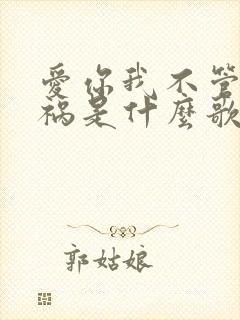 愛你我不管
禍是什麼歌
郭姑娘